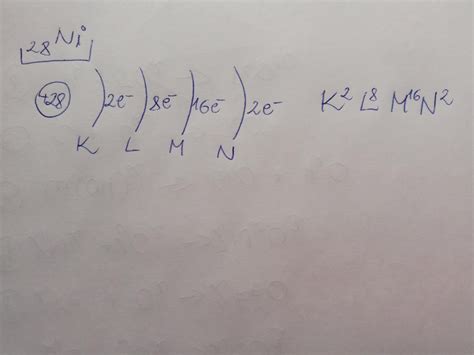 28Ni
+28 )2e⁻ )8e⁻ )16e⁻ )2e⁻ K² L⁸ M¹⁶ N²
K L M N